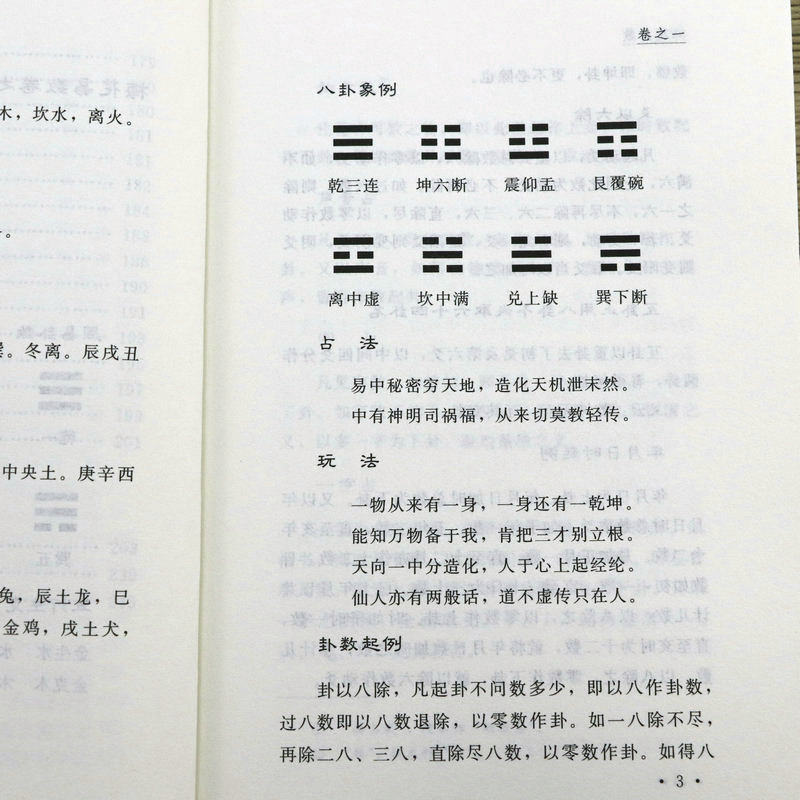 木，坎水，离火。
冬离。辰戌丑
中央土。庚辛酉
兔，辰土龙，巳
金鸡，戌土犬，
卷之一
八卦象例
乾三连 坤六断 震仰盂 艮覆碗
离中虚 坎中满 兑上缺 巽下断
占 法
易中秘密穷天地，造化天机泄未然。
中有神明司祸福，从来切莫教轻传。
玩 法
一物从来有一身，一身还有一乾坤。
能知万物备于我，肯把三才别立根。
天向一中分造化，人于心上起经纶。
仙人亦有两般话，道不虚传只在人。
卦数起例
卦以八除，凡起卦不问数多少，即以八作卦数，
过八数即以八数退除，以零数作卦。如一八除不尽，
再除二八、三八，直除尽八数，以零数作卦。如得八
·3·